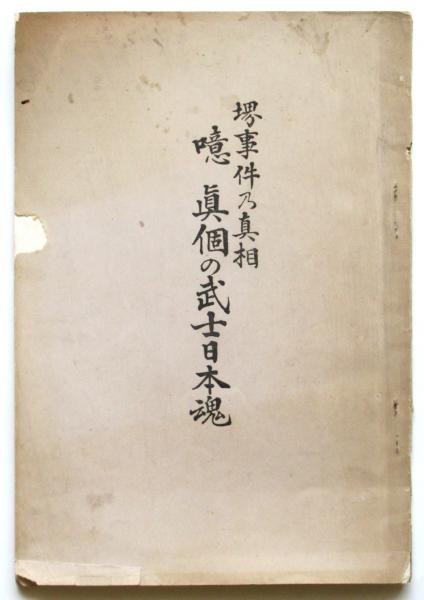 堺事件乃真相
噫 眞個の武士日本魂